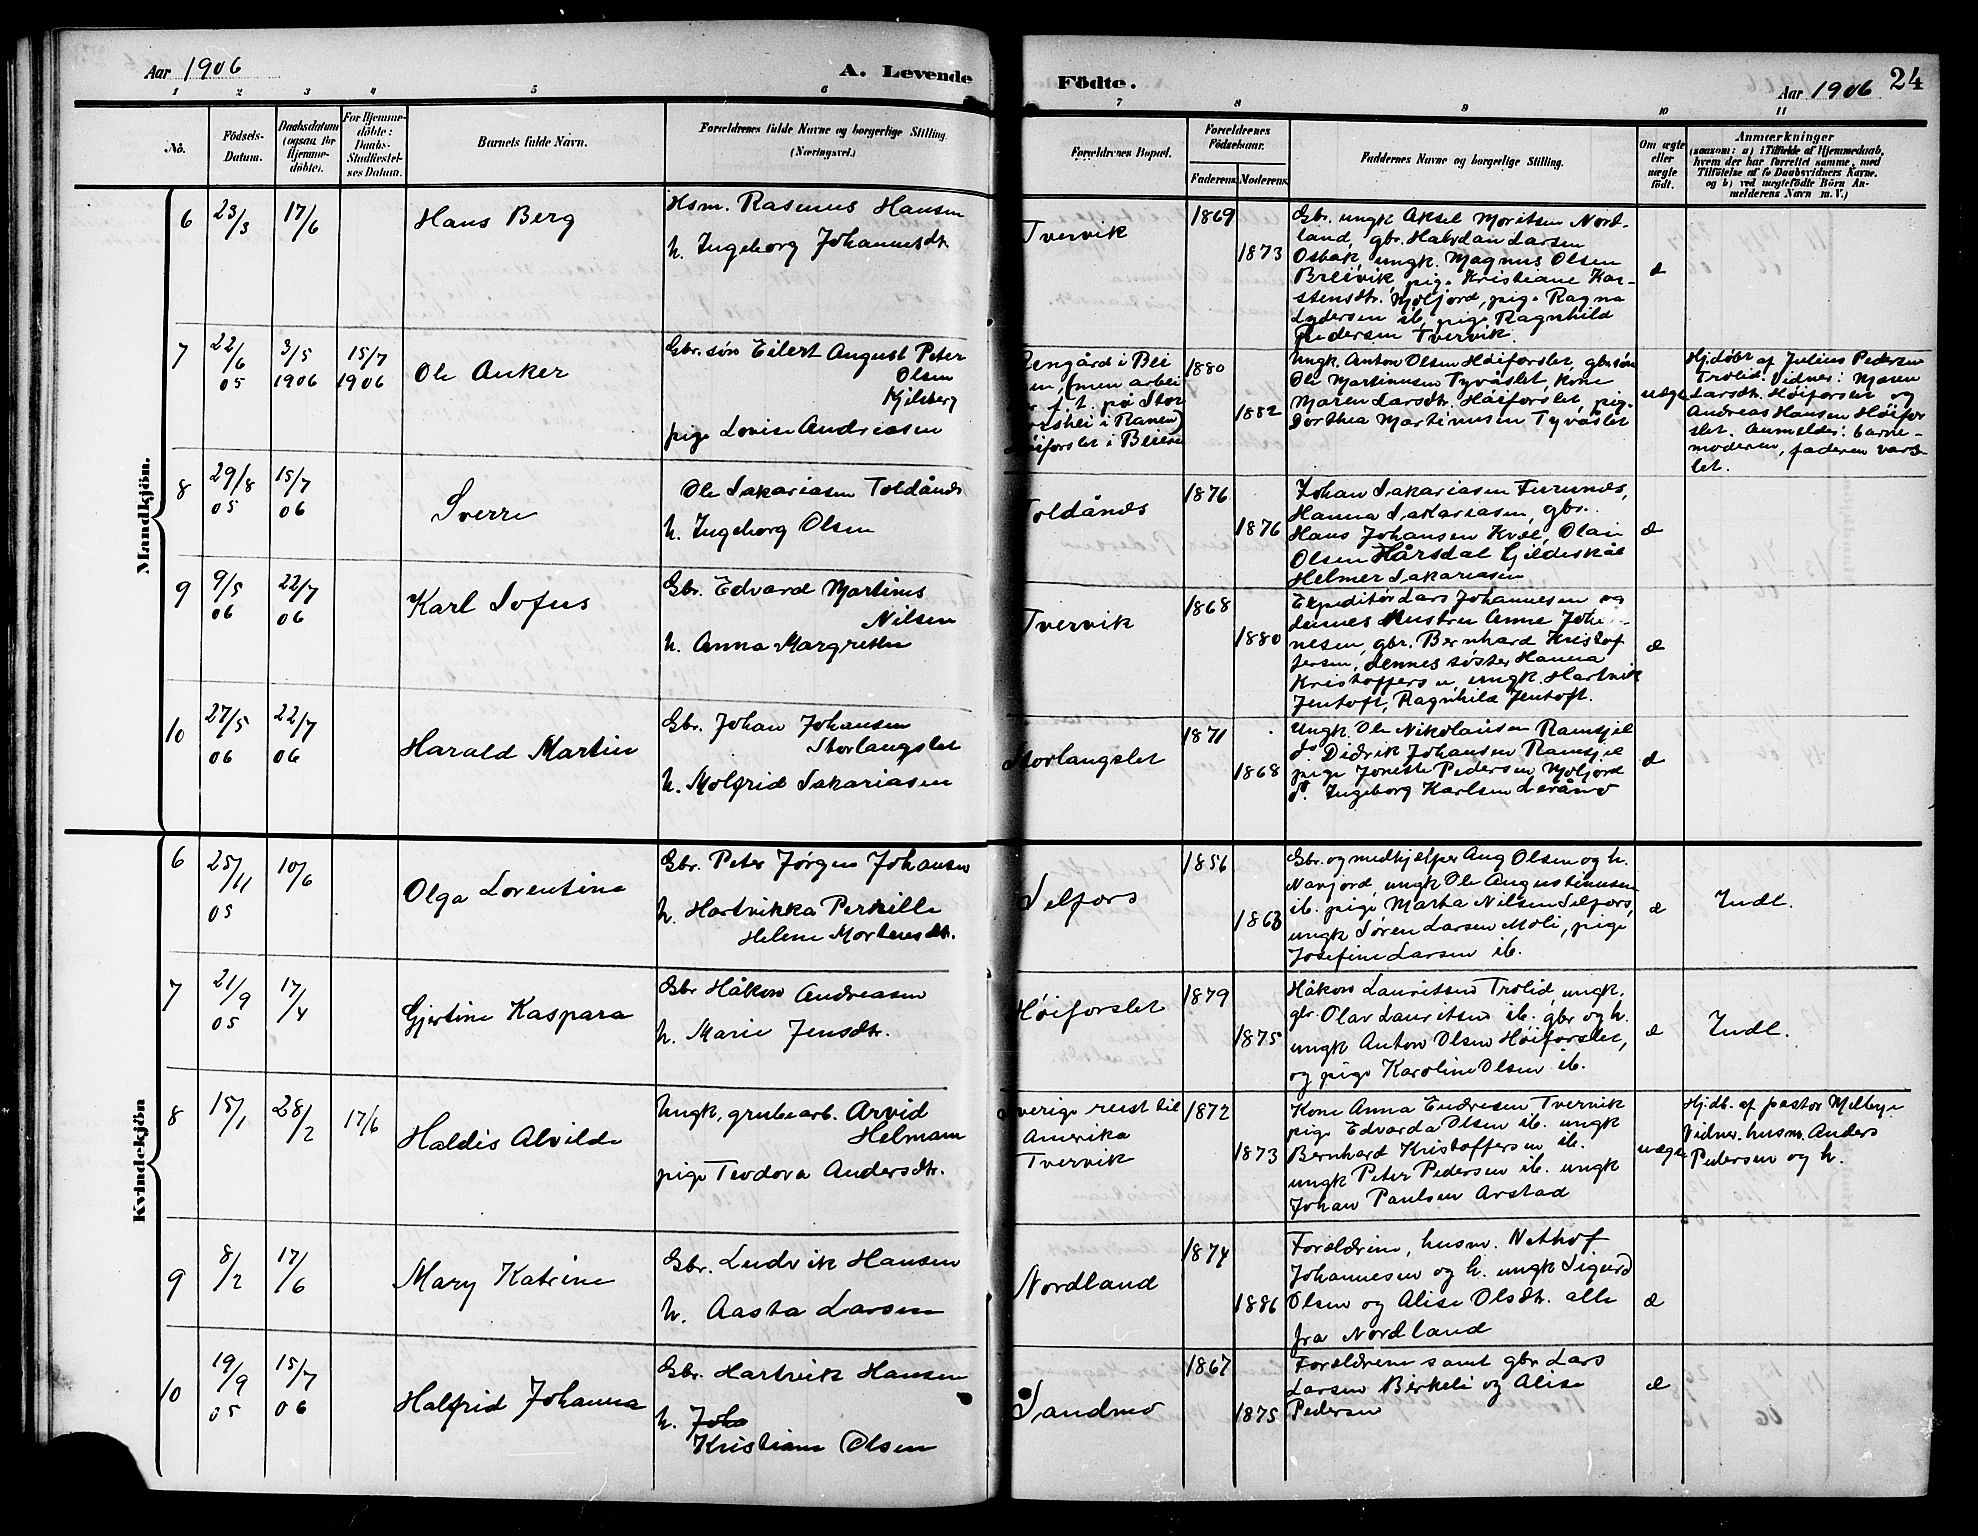 Aar 1906
A. Levende
Födte.
Aar 1906
24
1 2 3 4 5 6 7 8 9 10 11
No.
Födsels-
Datum.
Daabsdatum
(ogsaa for
Hjemme-
döbte).
For Hjemme-
döbte:
Daabs-
Stadfæstel-
ses Datum.
Barnets fulde Navn.
Forældrenes fulde Navne og borgerlige Stilling.
(Næringsvei.)
Forældrenes Bopæl.
Forældrenes
Födselsaar.
Faderens. Moderens.
Faddernes Navne og borgerlige Stilling.
Om ægte
eller
uægte
födt.
Anmærkninger
(saasom: a) i Tilfælde af Hjemmedaab,
hvem der har forrettet samme, med
Tilföielse af to Daabsvidners Navne.
og b) ved uægtefödte Börn An-
melderens Navn m. V.)
Mandkjön.
6
23/3
17/6
Hans Berg
Hsm. Rasmus Hansen
h. Ingeborg Johannesdtr.
Tvervik
1869
1873
Gbr. ungk Aksel Moritsen Nord-
land, gbr. Halvdan Larsen
Osbak, ungk. Magnus Olsen
Breivik, pige Kristiane Kar-
stensdtr. Moljord, pige Ragna
Lydersen ib, pige Ragnhild
Pedersen Tvervik.
æ
7
22/6
05
3/5
1906
15/7
1906
Ole Anker
Gbr. søn Eilert August Peter
Olsen
Kjelsberg
pige Lovise Andreasen
engård i Bei
en, (men arbei
f. t. på Stor
forshei i Ranen)
Høiforslet i Beiern
1880
1882
Ungk. Anton Olsen Høiforslet, gbr. søn
Ole Martinusen Tyvåslet, kone
Maren Larsdtr. Høiforslet, pige
Dorthea Martinusen Tyvåslet
uægte
Hj.døbt af Julius Pedersen
Trolid. Vidner: Maren
Larsdtr. Høiforslet og
Andreas Hansen Høifor
slet. Anmeldes: barne-
moderen, faderen vars-
let.
8
29/8
05
15/7
06
Sverre
Ole Sakariasen Toldånes
h. Ingeborg Olsen
Toldånes
1876
1876
Johan Sakariasen Furunes,
Hanna Sakariasen, gbr.
Hans Johansen Kvæl, Olai
Olsen Hårsdal Gildeskål
Helmer Sakariasen
æ
9
9/5
06
22/7
06
Karl Sofus
Gbr. Edvard Martinus
Nilsen
h. Anna Margrethe
Tvervik
1868
1880
Expeditør Lars Johannesen og
dennes hustru Anne Joha-
nesen, gbr. Bernhard Kristof
fersen, dennes søster Hanna
Kristoffersen, ungk. Hartvik
Jentoft, Ragnhild Jentoft.
æ
10
27/5
06
22/7
06
Harald Martin
Gbr. Johan Johansen
Storlangslet
h. Molfrid Sakariasen
Storlangslet
1871
1868
Ungk. Ole Nikolaisen Ramsjel
do Didrik Johansen Ramsjel
pige Jonette Pedersen Moljord
do. Ingeborg Karlsen Leirånes
æ
Kvindekjön
6
25/11
05
10/6
Olga Lorentine
Gbr. Peter Jørgen Johansen
h. Hartvikka Pernille
Helene Mortensdtr.
Selfors
1856
1863
Gbr. og medhjælper Aug Olsen og h.
Navjord, ungk Ole Augustinusen
ib. pige Marta Nilsen Selfors,
ungk Søren Larsen Moli, pige
Josefine Larsen ib.
æ
Indl.
7
21/9
05
17/4
Gjertine Kaspara
Gbr Håkon Andreasen
h. Marie Jensdtr.
Høiforslet
1879
1875
Håkon Lauritsen Trolid, ungk.
gbr. Olav Lauritsen ib. gbr og h.
ungk Anton Olsen Høiforslet,
og pige Karoline Olsen ib.
æ
Indl.
8
15/1
28/2
17/6
Haldis Alvilde
Ungk, grubearb. Arvid
Helmann
pige Teodora Andersdtr.
Sverige reist til
Amerika
Tvervik
1872
1873
Kone Anna Endresen Tvervik
pige Edvarda Olsen ib. ungk
Bernhard Kristoffersen ib.
ungk Peter Pedersen ib. ungk
Johan Paulsen Arstad
uægte
Hj.db. af pastor Melbye
Vidner. husm. Anders
Pedersen og h.
9
8/2
17/6
Mary Katrine
Gbr. Ludvik Hansen
h. Aasta Larsen
Nordland
1874
1886
Forældrene, husm. Nethof
Johannesen og h. ungk Sigurd
Olsen og Alise Olsdtr. alle
fra Nordland
æ
10
19/9
05
15/7
06
Halfrid Johanna
Gbr. Hartvik Hansen
h. Joha
Kristiane Olsen
Sandmo
1867
1875
Forældrene samt gbr Lars
Larsen Birkeli og Alise
Pedersen
æ